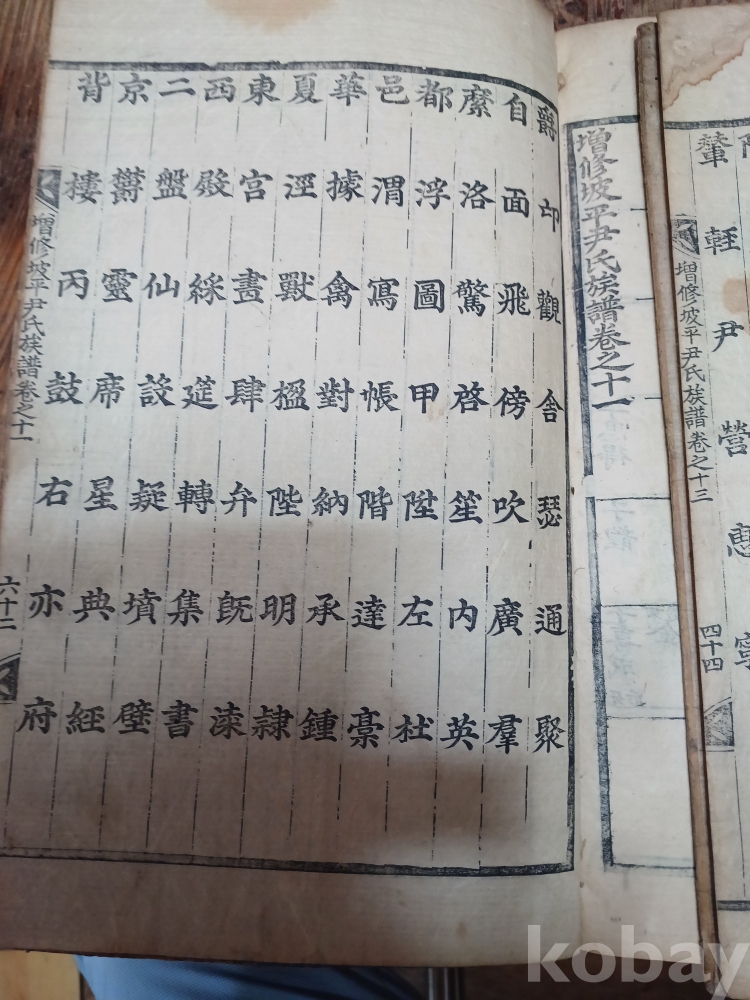 輦
輕
尹
營
惠
寧
增修坡平尹氏族譜卷之十三
四十四
增修坡平尹氏族譜卷之十一
爵自縻都邑華夏東西二京背
邙面洛浮渭據涇宮殿盤鬱樓
觀飛驚圖寫禽獸畫綵仙靈丙
舍傍啓甲帳對楹肆筵設席鼓
瑟吹笙陞階納陛弁轉疑星右
通廣内左達承明既集墳典亦
聚羣英杜稾鍾隷漆書壁經府
增修坡平尹氏族譜卷之十一
六十二
kobay